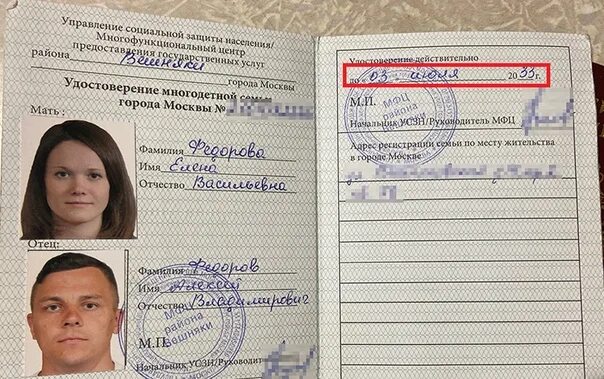 Управление социальной защиты населения/
Многофункциональный центр
предоставления государственных услуг
района Вешняки
города Москвы
Удостоверение многодетной семьи
города Москвы №
Мать :
Фамилия Федорова
Имя Елена
Отчество Васильевна
Отец:
Фамилия Федоров
Имя Алексей
Отчество Владимирович
М.П.
МФЦ
района
Вешняки
Начальник УСЗН/Руководитель
Удостоверение действительно
до « 03 » июля 2033г.
М.П.
МФЦ
района
Начальник УСЗН/Руководитель МФЦ
Адрес регистрации семьи по месту жительства
в городе Москве